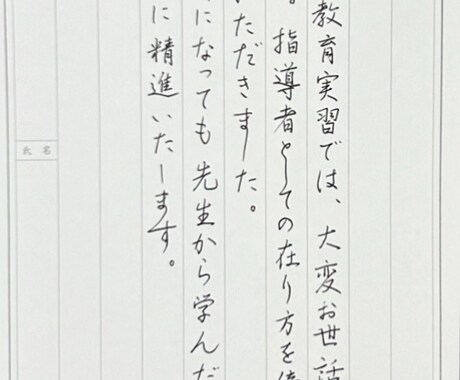 教育実習では、大変お世話
。指導者としての在り方を
ただきました。
になっても先生から学んだ
に精進いたします。
氏名